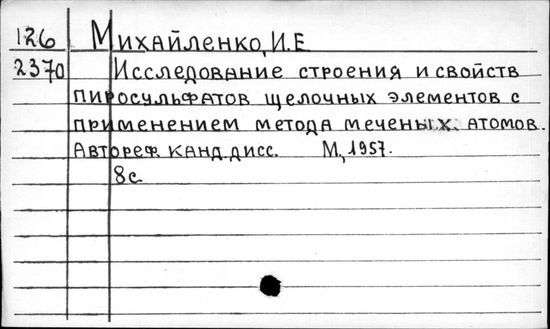 126 Михайленко, И.Е
2370 Исследование строения и свойств
пиросульфатов щелочных элементов с
применением метода меченых атомов.
Автореф. канд. дисс. М, 1957.
8с.